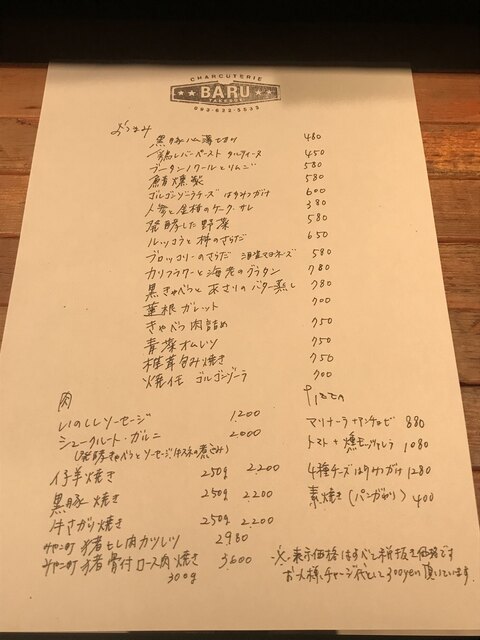 CHARCUTERIE
BARU
TAKESUE
093-622-5533
おつまみ
黒豚ハム薄切り 480
鶏レバーペースト タルティーヌ 450
ブータンノワールとりんご 580
鯖燻製 580
ゴルゴンゾーラチーズ はちみつがけ 600
人参と生ハムのケークサレ 380
発酵した野菜 580
ルッコラと柿のさらだ 650
ブロッコリーのさらだ 海苔マヨネーズ 580
カリフラワーと海老のグラタン 780
黒きゃべつと あさりのバター蒸し 780
蓮根 ガレット 700
きゃべつ 肉詰め 750
青菜オムレツ 750
椎茸包み焼き 750
焼イモ ゴルゴンゾーラ 700
肉
いのししソーセージ 1.200
シュークルート・ガルニ 2.000
(発酵きゃべつとソーセージ、牛スネの煮込み)
仔羊焼き 250g 2.200
黒豚 焼き 250g 2.200
牛さがり焼き 250g 2.200
みやこ町 猪もも肉カツレツ 2980
みやこ町 猪 骨付ロース肉焼き 3.600
300g
ピザ
マリナーラ+アンチョビ 880
トマト+燻モッツァレラ 1080
4種チーズはちみつがけ 1280
素焼き(パンがわり) 400
※表示価格はすべて税抜き価格です
お一人様、チャージ代として300yen頂いています。